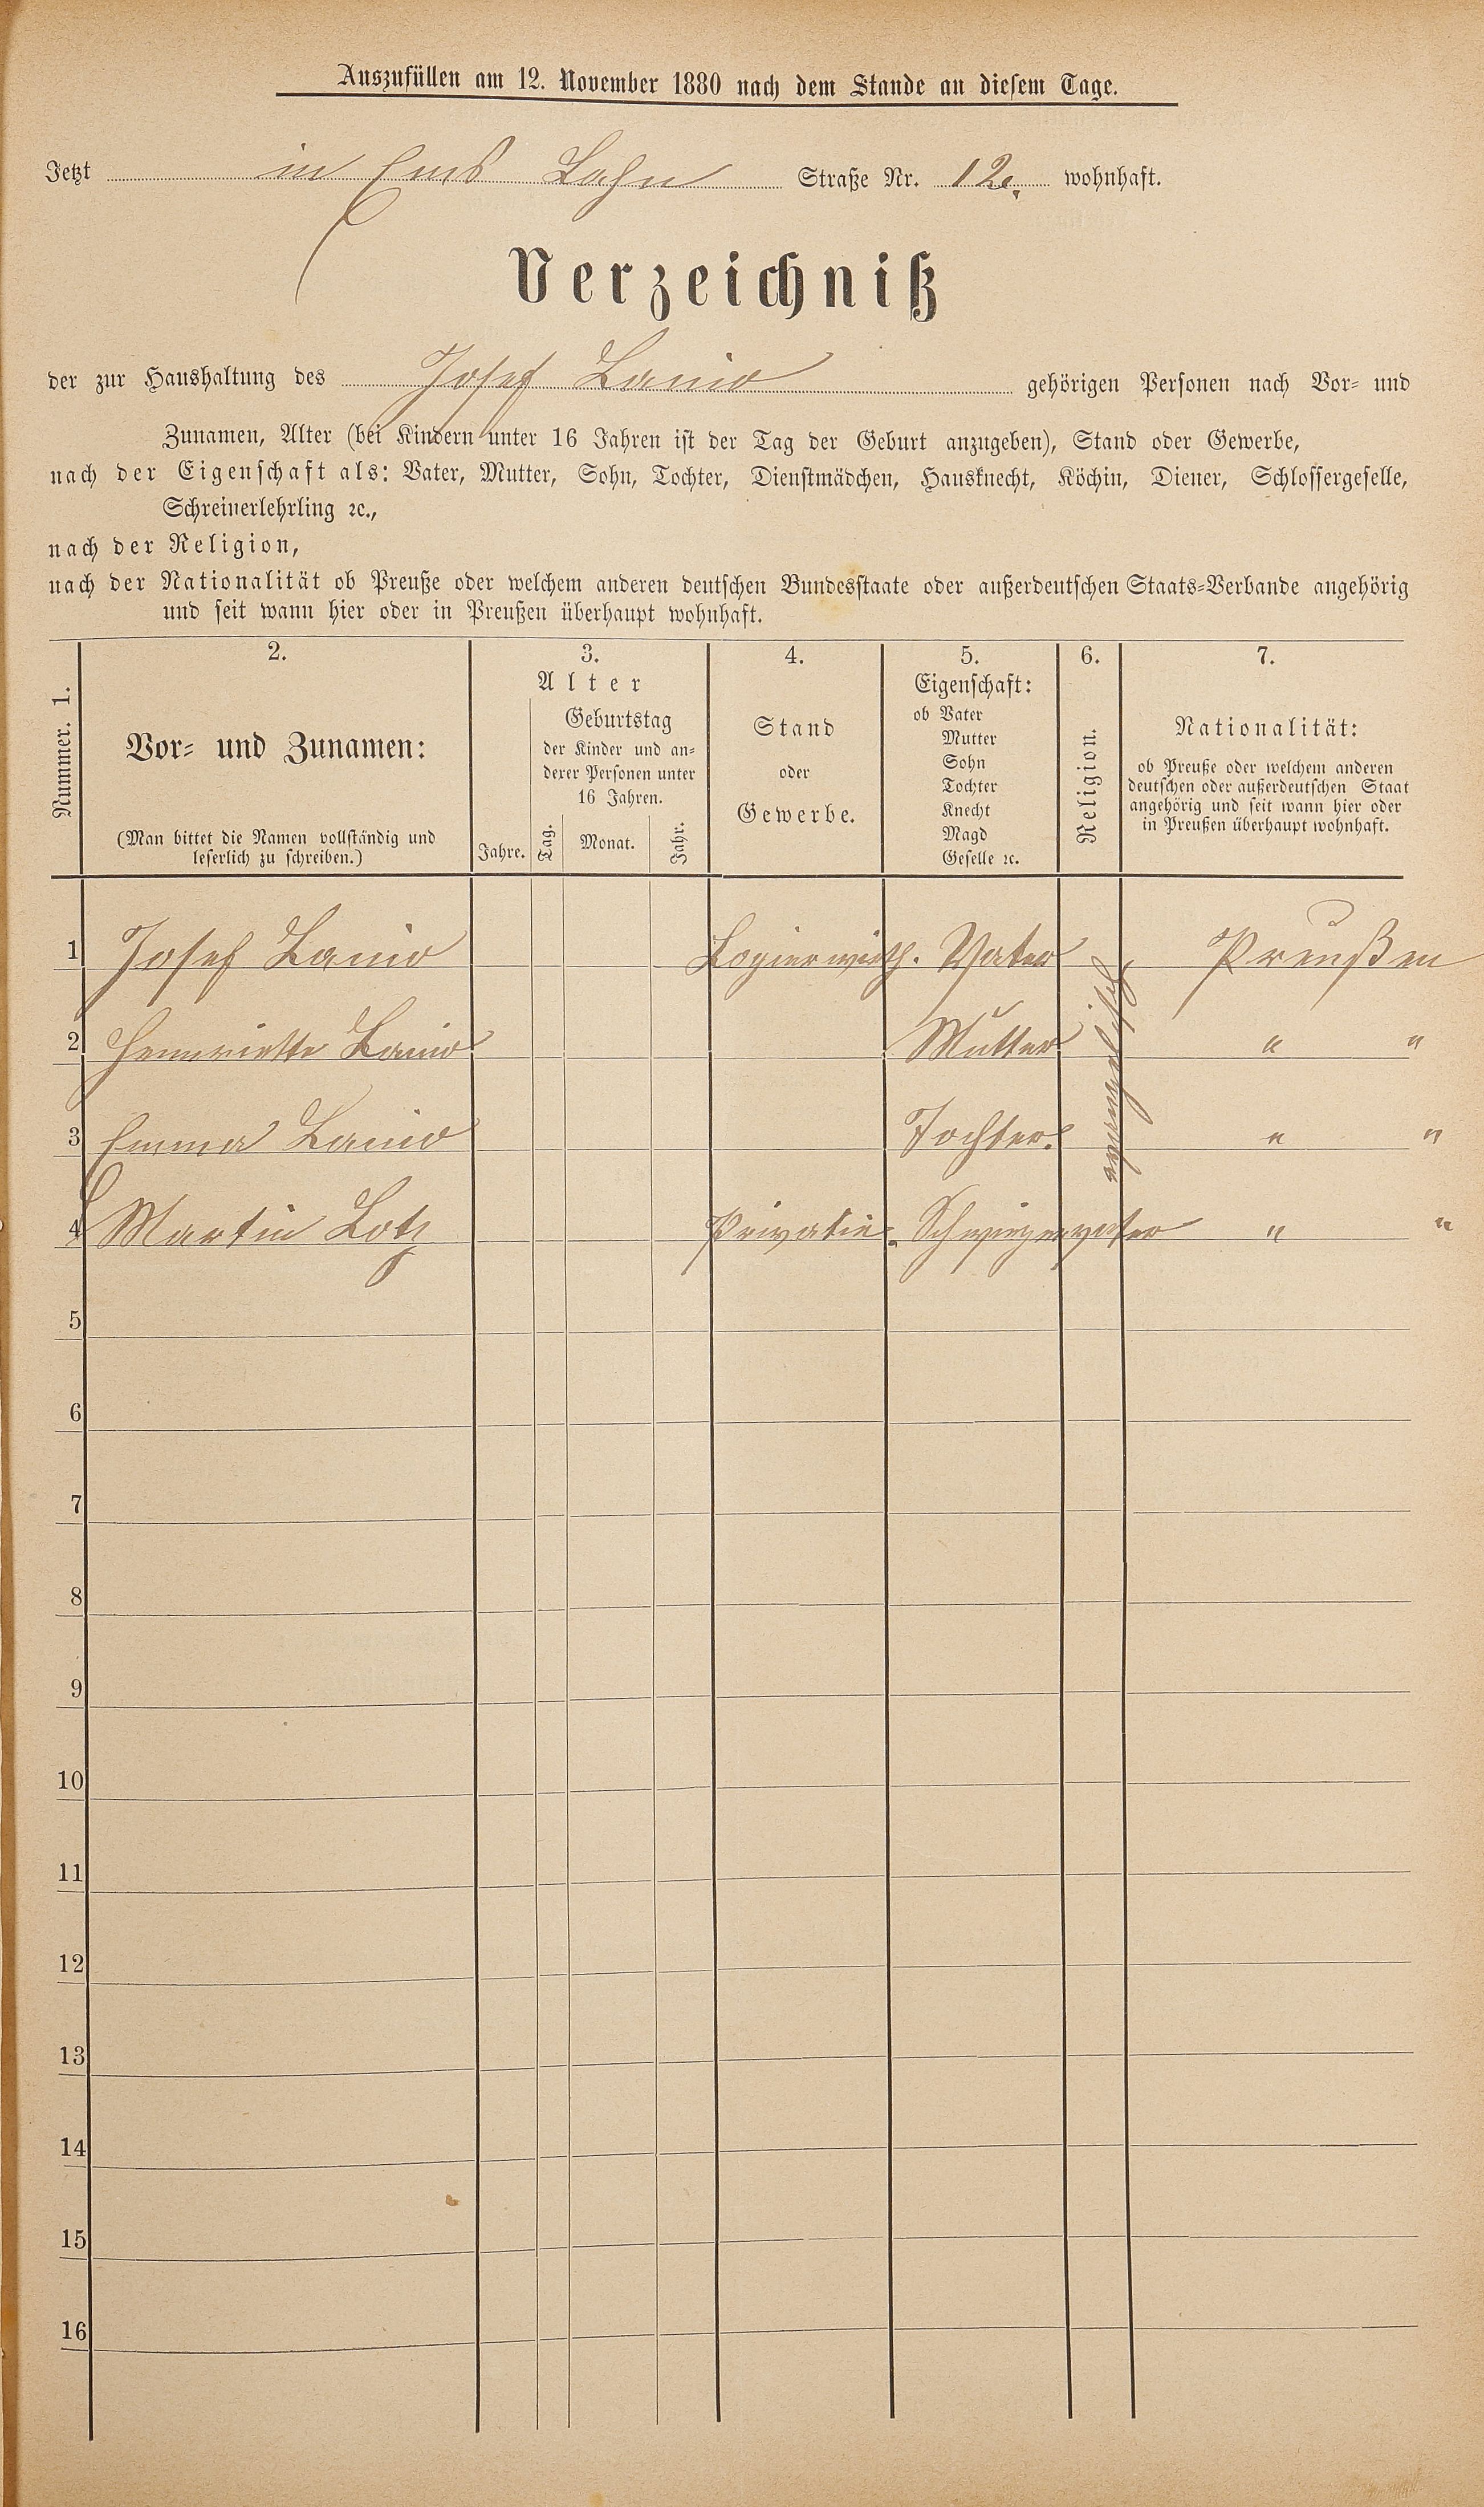 Auszufüllen am 12. November 1880 nach dem Stande an diesem Tage.
Jetzt in Ems Lahn Straße Nr. 12. wohnhaft.
Verzeichniß
der zur Haushaltung des Josef Lanio gehörigen Personen nach Vor- und
Zunamen, Alter (bei Kindern unter 16 Jahren ist der Tag der Geburt anzugeben), Stand oder Gewerbe,
nach der Eigenschaft als: Vater, Mutter, Sohn, Tochter, Dienstmädchen, Hausknecht, Köchin, Diener, Schlossergeselle,
Schreinerlehrling ꝛc.,
nach der Religion,
nach der Nationalität ob Preuße oder welchem anderen deutschen Bundesstaate oder außerdeutschen Staats-Verbande angehörig
und seit wann hier oder in Preußen überhaupt wohnhaft.
Nummer. 1.
2.
Vor- und Zunamen:
(Man bittet die Namen vollständig und
leserlich zu schreiben.)
3.
Alter
Jahre.
Geburtstag
der Kinder und an-
derer Personen unter
16 Jahren.
Tag. Monat. Jahr.
4.
Stand
oder
Gewerbe.
5.
Eigenschaft:
ob Vater
Mutter
Sohn
Tochter
Knecht
Magd
Geselle ꝛc.
6.
Religion.
7.
Nationalität:
ob Preuße oder welchem anderen
deutschen oder außerdeutschen Staat
angehörig und seit wann hier oder
in Preußen überhaupt wohnhaft.
1 Josef Lanio Logierwirth. Vater Preußen
evangelisch
2 Hennriette Lanio Mutter " "
3 Emma Lanio Tochter. " "
4 Martin Lotz Privatie. Schwiegervater " "
5
6
7
8
9
10
11
12
13
14
15
16